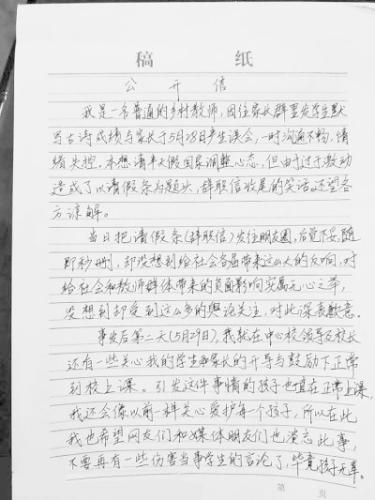 稿 纸
公 开 信
我是一名普通的乡村教师，因往家长群里发学生默
写古诗成绩与家长于5月28日产生误会，一时沟通不畅，情
绪失控。本想请半天假回家调整心态，但由于过于激动
造成了以请假条为题头，辞职信收尾的笑话。还望各
方谅解。
当日把请假条（辞职信）发往朋友圈，后觉不妥，随
即秒删，却没想到给社会各界带来这么大的反响，对
给社会和教师群体带来的负面影响实属无心之举，
没想到却受到这么多的舆论关注，对此深表歉意。
事发后第二天（5月29日），我就在中心校领导及校长
还有一些关心我的学生和家长的开导与鼓励下正常
到校上课。引发这件事情的孩子也值在正常上课，
我还会像以前一样关心爱护每个孩子，所以在此
我也希望网友们和媒体朋友们也淡忘此事，
不要再有一些伤害当事学生的言论了，毕竟孩子无辜。
第 页